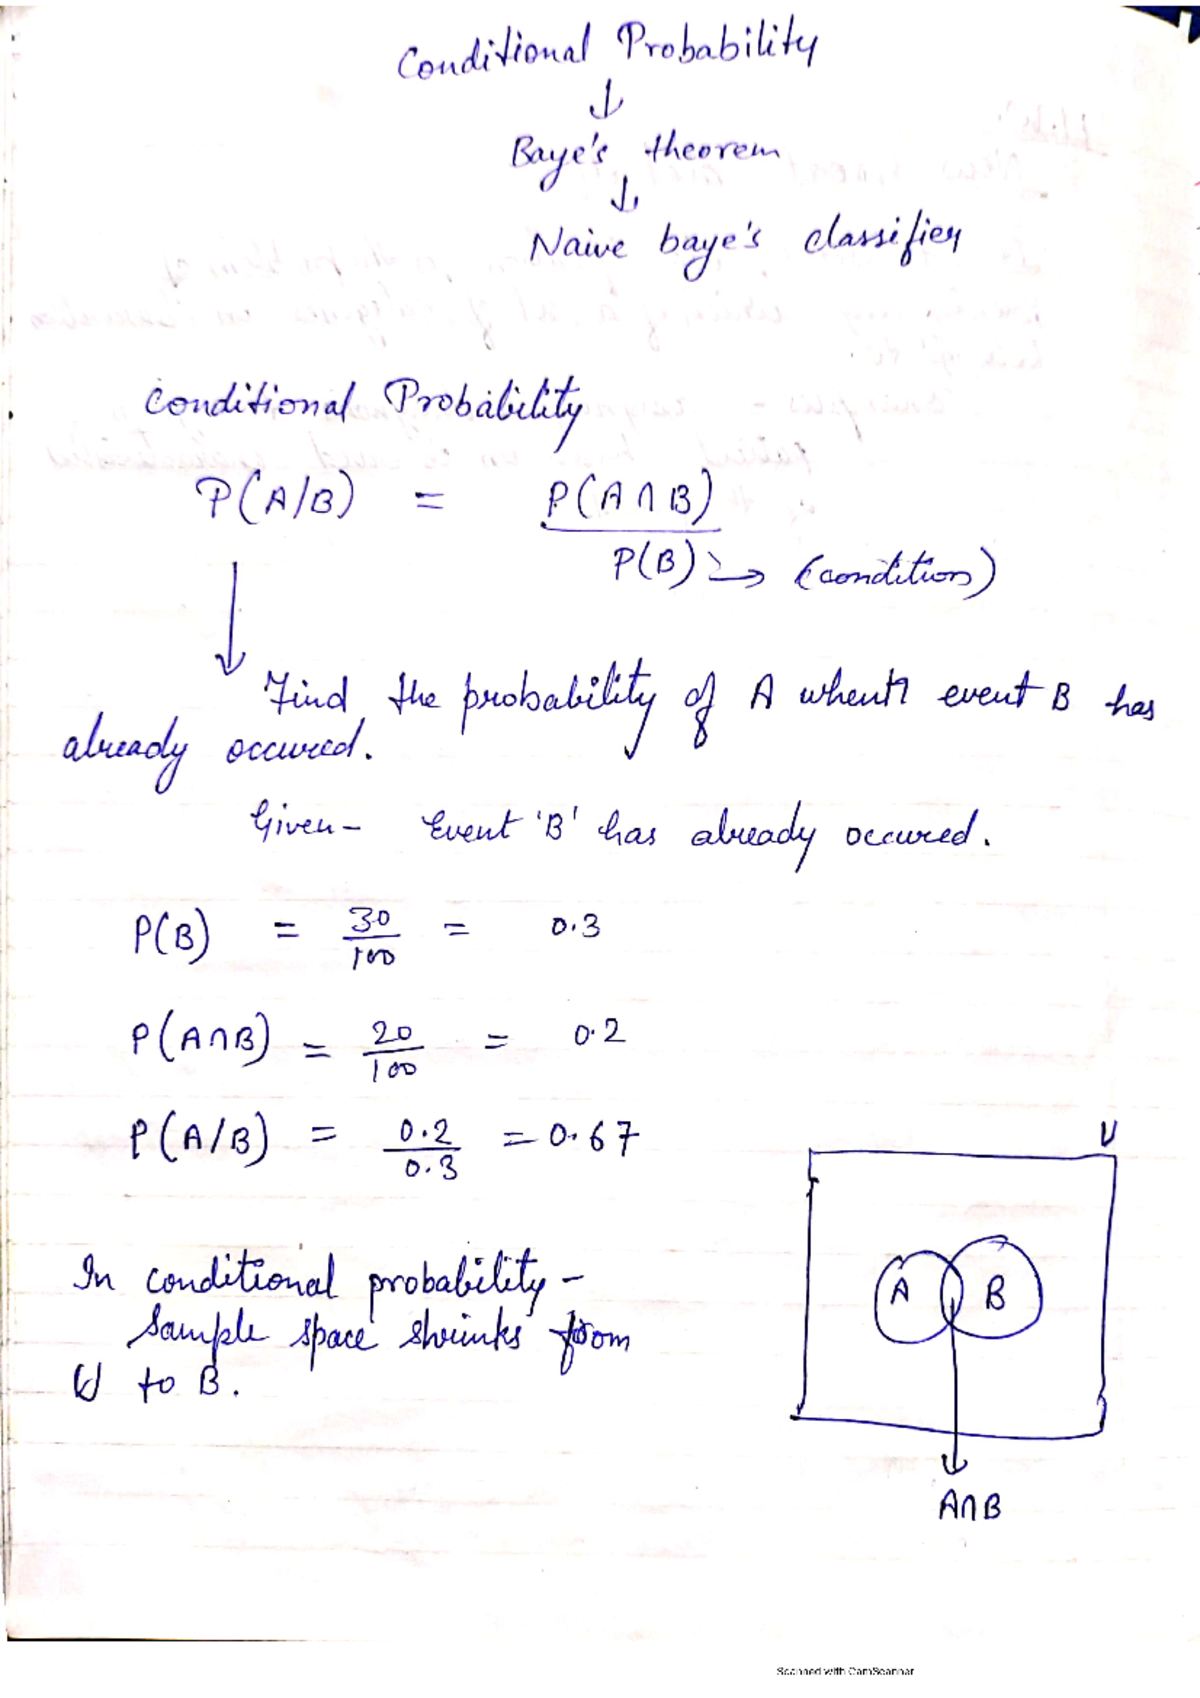 Conditional Probability
↓
Baye's theorem
↓
Naive baye's classifier
Conditional Probability
P(A/B) = P(A∩B)
P(B) → (condition)
↓
Find the probability of A when event B has
already occured.
Given - Event 'B' has already occured.
P(B) = 30/100 = 0.3
P(A∩B) = 20/100 = 0.2
P(A/B) = 0.2/0.3 = 0.67
U
In conditional probability -
A B
Sample space shrinks from
U to B.
A∩B
Scanned with CamScanner